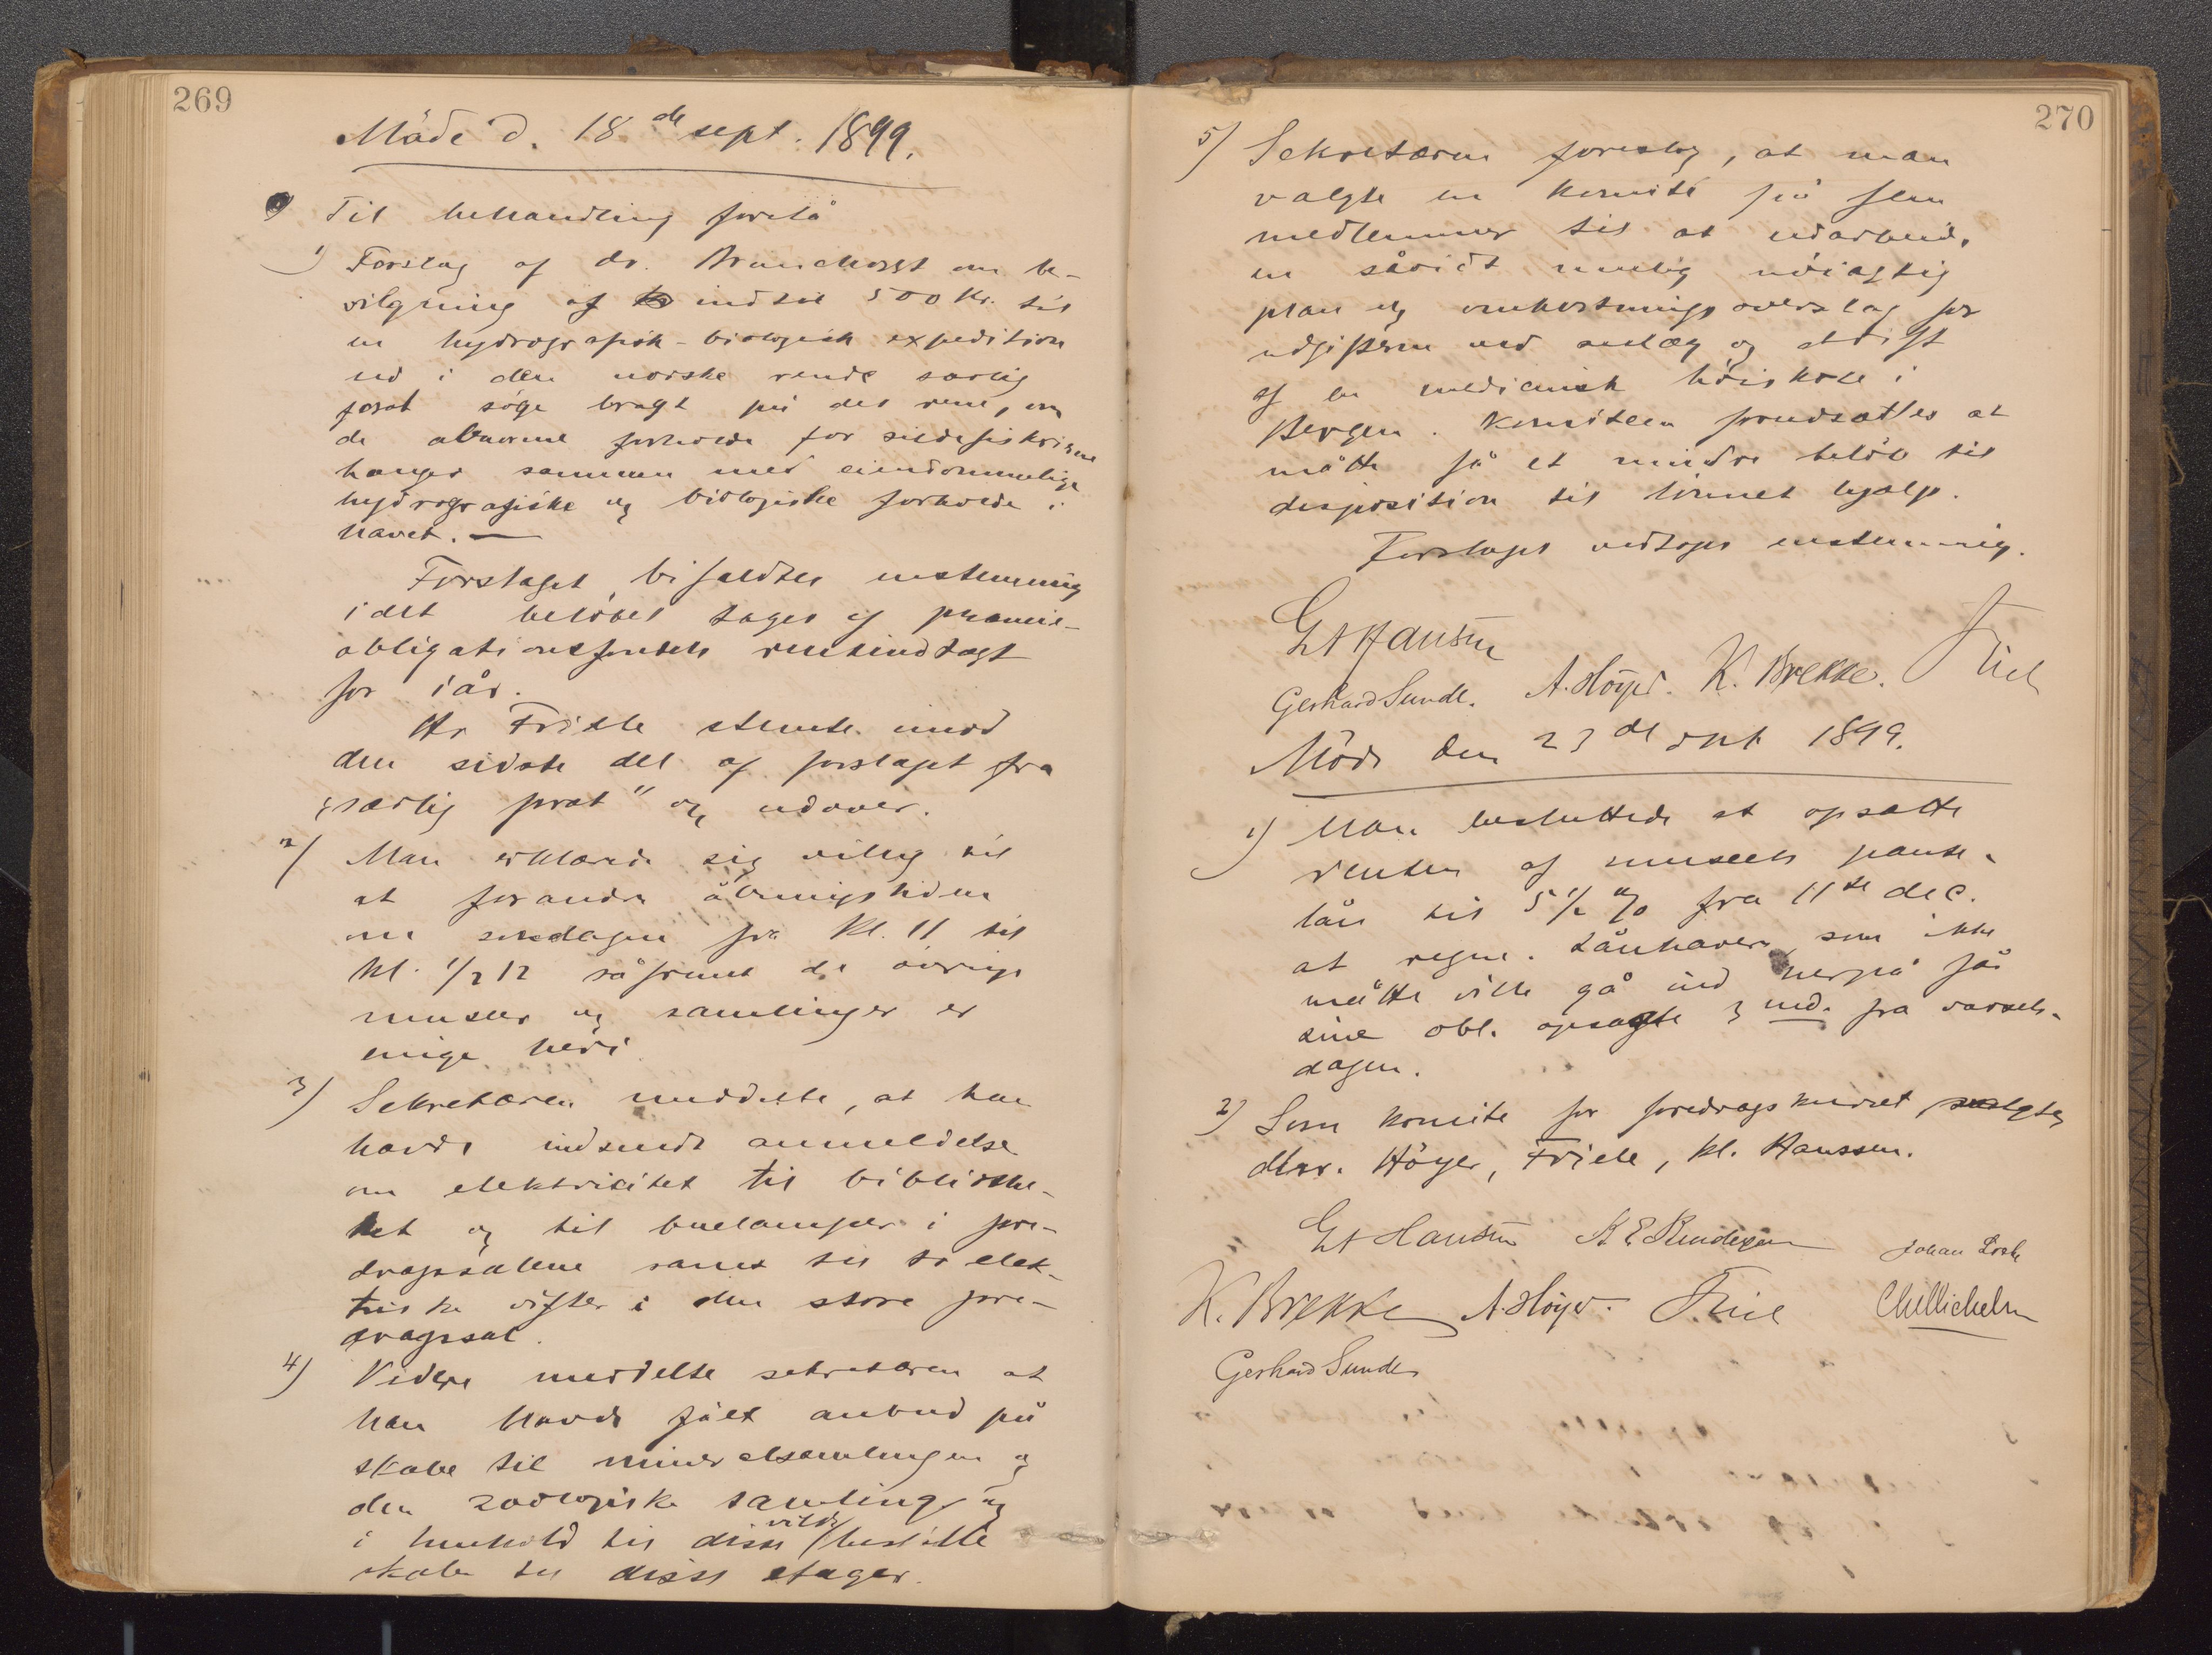 269
Møde d. 18de sept. 1899.
Til behandling forelå
1) Forslag af dr. Brunchorst om be-
vilgning af indtil 500 kr. til
en hydrografisk-biologisk expedition
ud i den norske rende særlig
forat søge bragt på det rene, om
de abnorme forholde for sildefiskeriene
hænger sammen med eiendommelige
hydrografiske og biologiske forholde i
havet. —
Forslaget bifaldtes enstemmig
idet beløbet tages af præmie-
obligationsfondets renteindtægt
for iår.
Hr Friele stemte imod
den sidste del af forslaget fra
"særlig forat" og udover.
2) Man erklærede sig villig til
at forandre åbningstiden
om søndagen fra kl. 11 til
kl. 1/2 12 såfremt de øvrige
museer og samlinger er
enige heri
3) Sekretæren meddelte, at han
havde indsendt anmeldelse
om elektricitet til bibliothe-
ket og til buelamper i fore-
dragssalene samt til to elek-
triske vifter i den store fore-
dragssal.
4) Videre meddelte sekretæren at
han havde fået anbud på
skabe til mineralsamlingen og
den zoologiske samling, og
i henhold til disse vilde bestille
skabe til disse etager.
270
5) Sekretæren foreslog, at man
valgte en komité på fem
medlemmer til at udarbeide
en såvidt mulig nøiagtig
plan og omkostningsoverslag for
udgifterne ved anlæg og drift
af en medicinsk høiskole i
Bergen. Komiteen forudsattes at
måtte få et mindre beløb til
disposition til lønnet hjælp.
Forslaget vedtoges enstemmig.
Gt Hansen
Gerhard Sunde. A. Höyer. K. Brekke. Friele
Møde den 23de okt 1899.
1) Man besluttede at opsætte
renten af museets pante-
lån til 5 1/2 % fra 11te dec.
at regne. Lånhavere, som ikke
måtte ville gå ind herpå får
sine obl. opsagte 3 md. fra varsels-
dagen.
2) Som komite for foredragskurset valgtes
dhrr. Höyer, Friele, Kl. Hanssen.
Gt Hansen Johan Lothe
K. Brekke A. Höyer. Friele
Gerhard Sunde